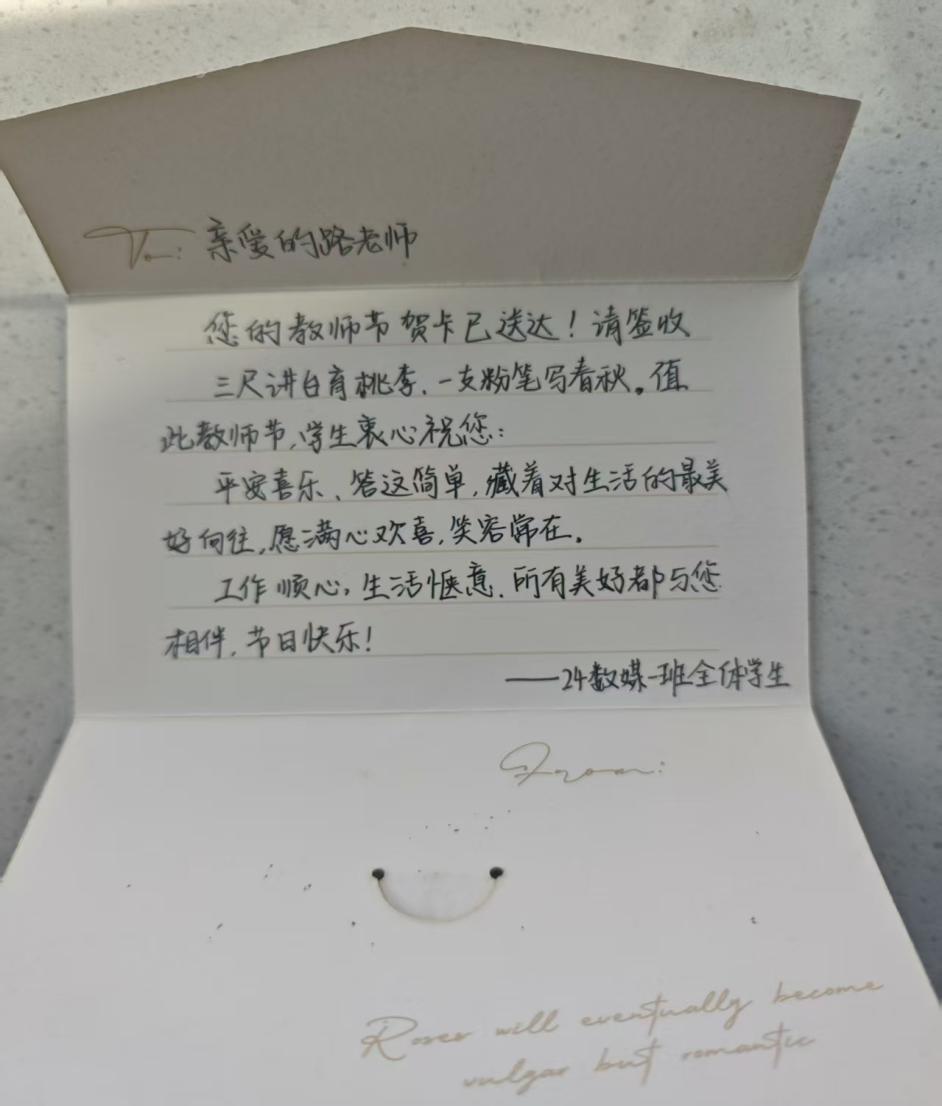 To: 亲爱的路老师
您的教师节贺卡已送达！请签收
三尺讲台育桃李，一支粉笔写春秋。值
此教师节，学生衷心祝您：
平安喜乐、答这简单，藏着对生活的最美
好向往，愿满心欢喜，笑容常在。
工作顺心，生活惬意，所有美好都与您
相伴，节日快乐！
——24数媒一班全体学生
From:
Roses will eventually become
vulgar but romantic